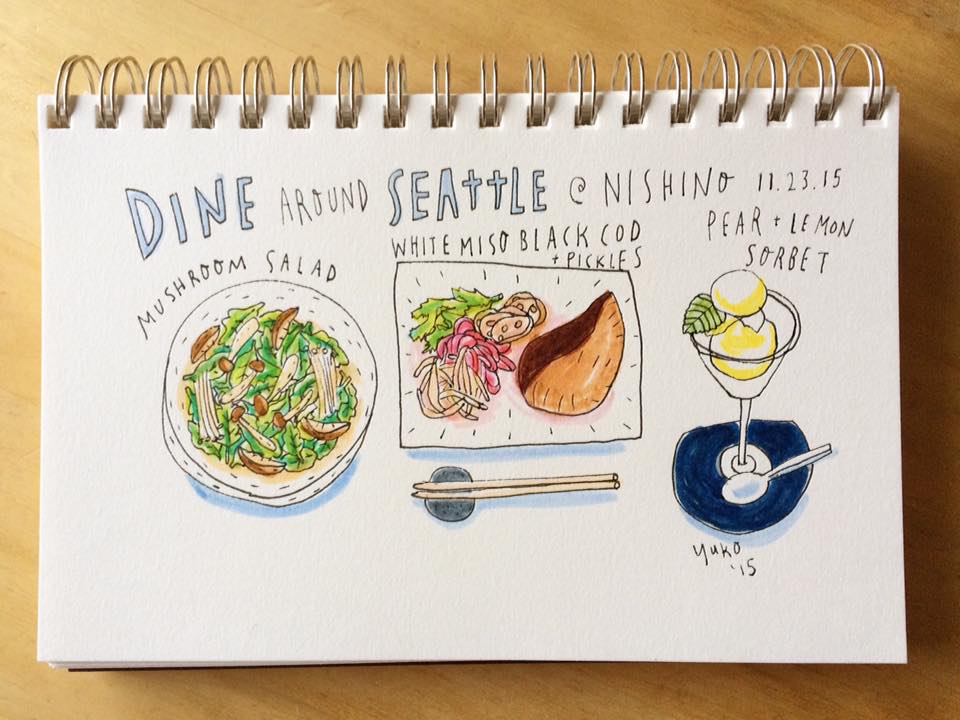 DINE AROUND SEATTLE @ NISHINO 11.23.15
MUSHROOM SALAD
WHITE MISO BLACK COD
+ PICKLES
PEAR + LEMON
SORBET
yuko
'15